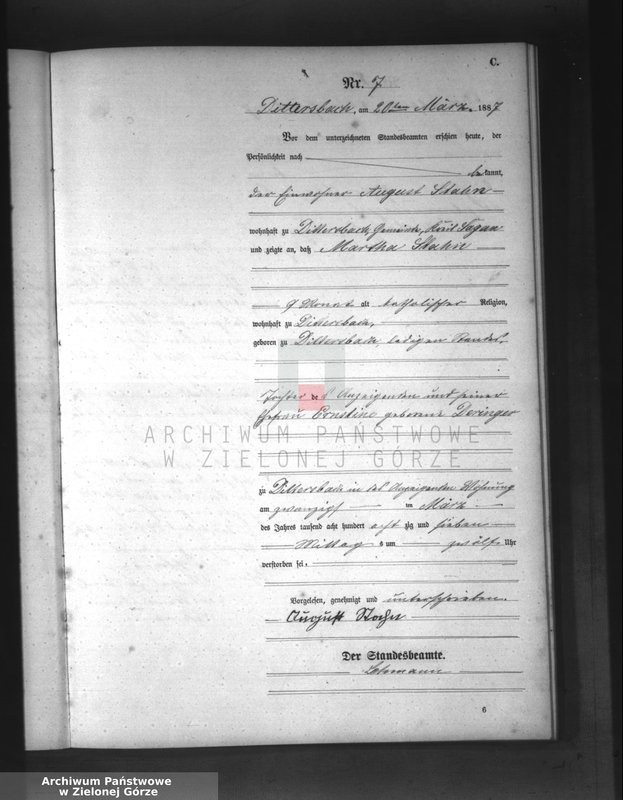 C.
Nr. 7
Dittersbach, am 20ten März 1887
Vor dem unterzeichneten Standesbeamten erschien heute, der
Persönlichkeit nach
bekannt,
der Einwohner August Stahn
wohnhaft zu Dittersbach, Gemeinde, Kreis Sagan
und zeigte an, daß Martha Stahn
9 Monat alt katholischer Religion,
wohnhaft zu Dittersbach,
geboren zu Dittersbach, ledigen Standes,
Tochter des Anzeigenden und seiner
Ehefrau Ernstine geborene Deringer
ARCHIWUM PAŃSTWOWE
W ZIELONEJ GÓRZE
zu Dittersbach in des Anzeigenden Wohnung
am zwanzigst im März
des Jahres tausend acht hundert achtzig und sieben
Mittag s um zwölf Uhr
verstorben sei.
Vorgelesen, genehmigt und unterschrieben.
August Stahn
Der Standesbeamte.
Lehmann
6
Archiwum Państwowe
w Zielonej Górze